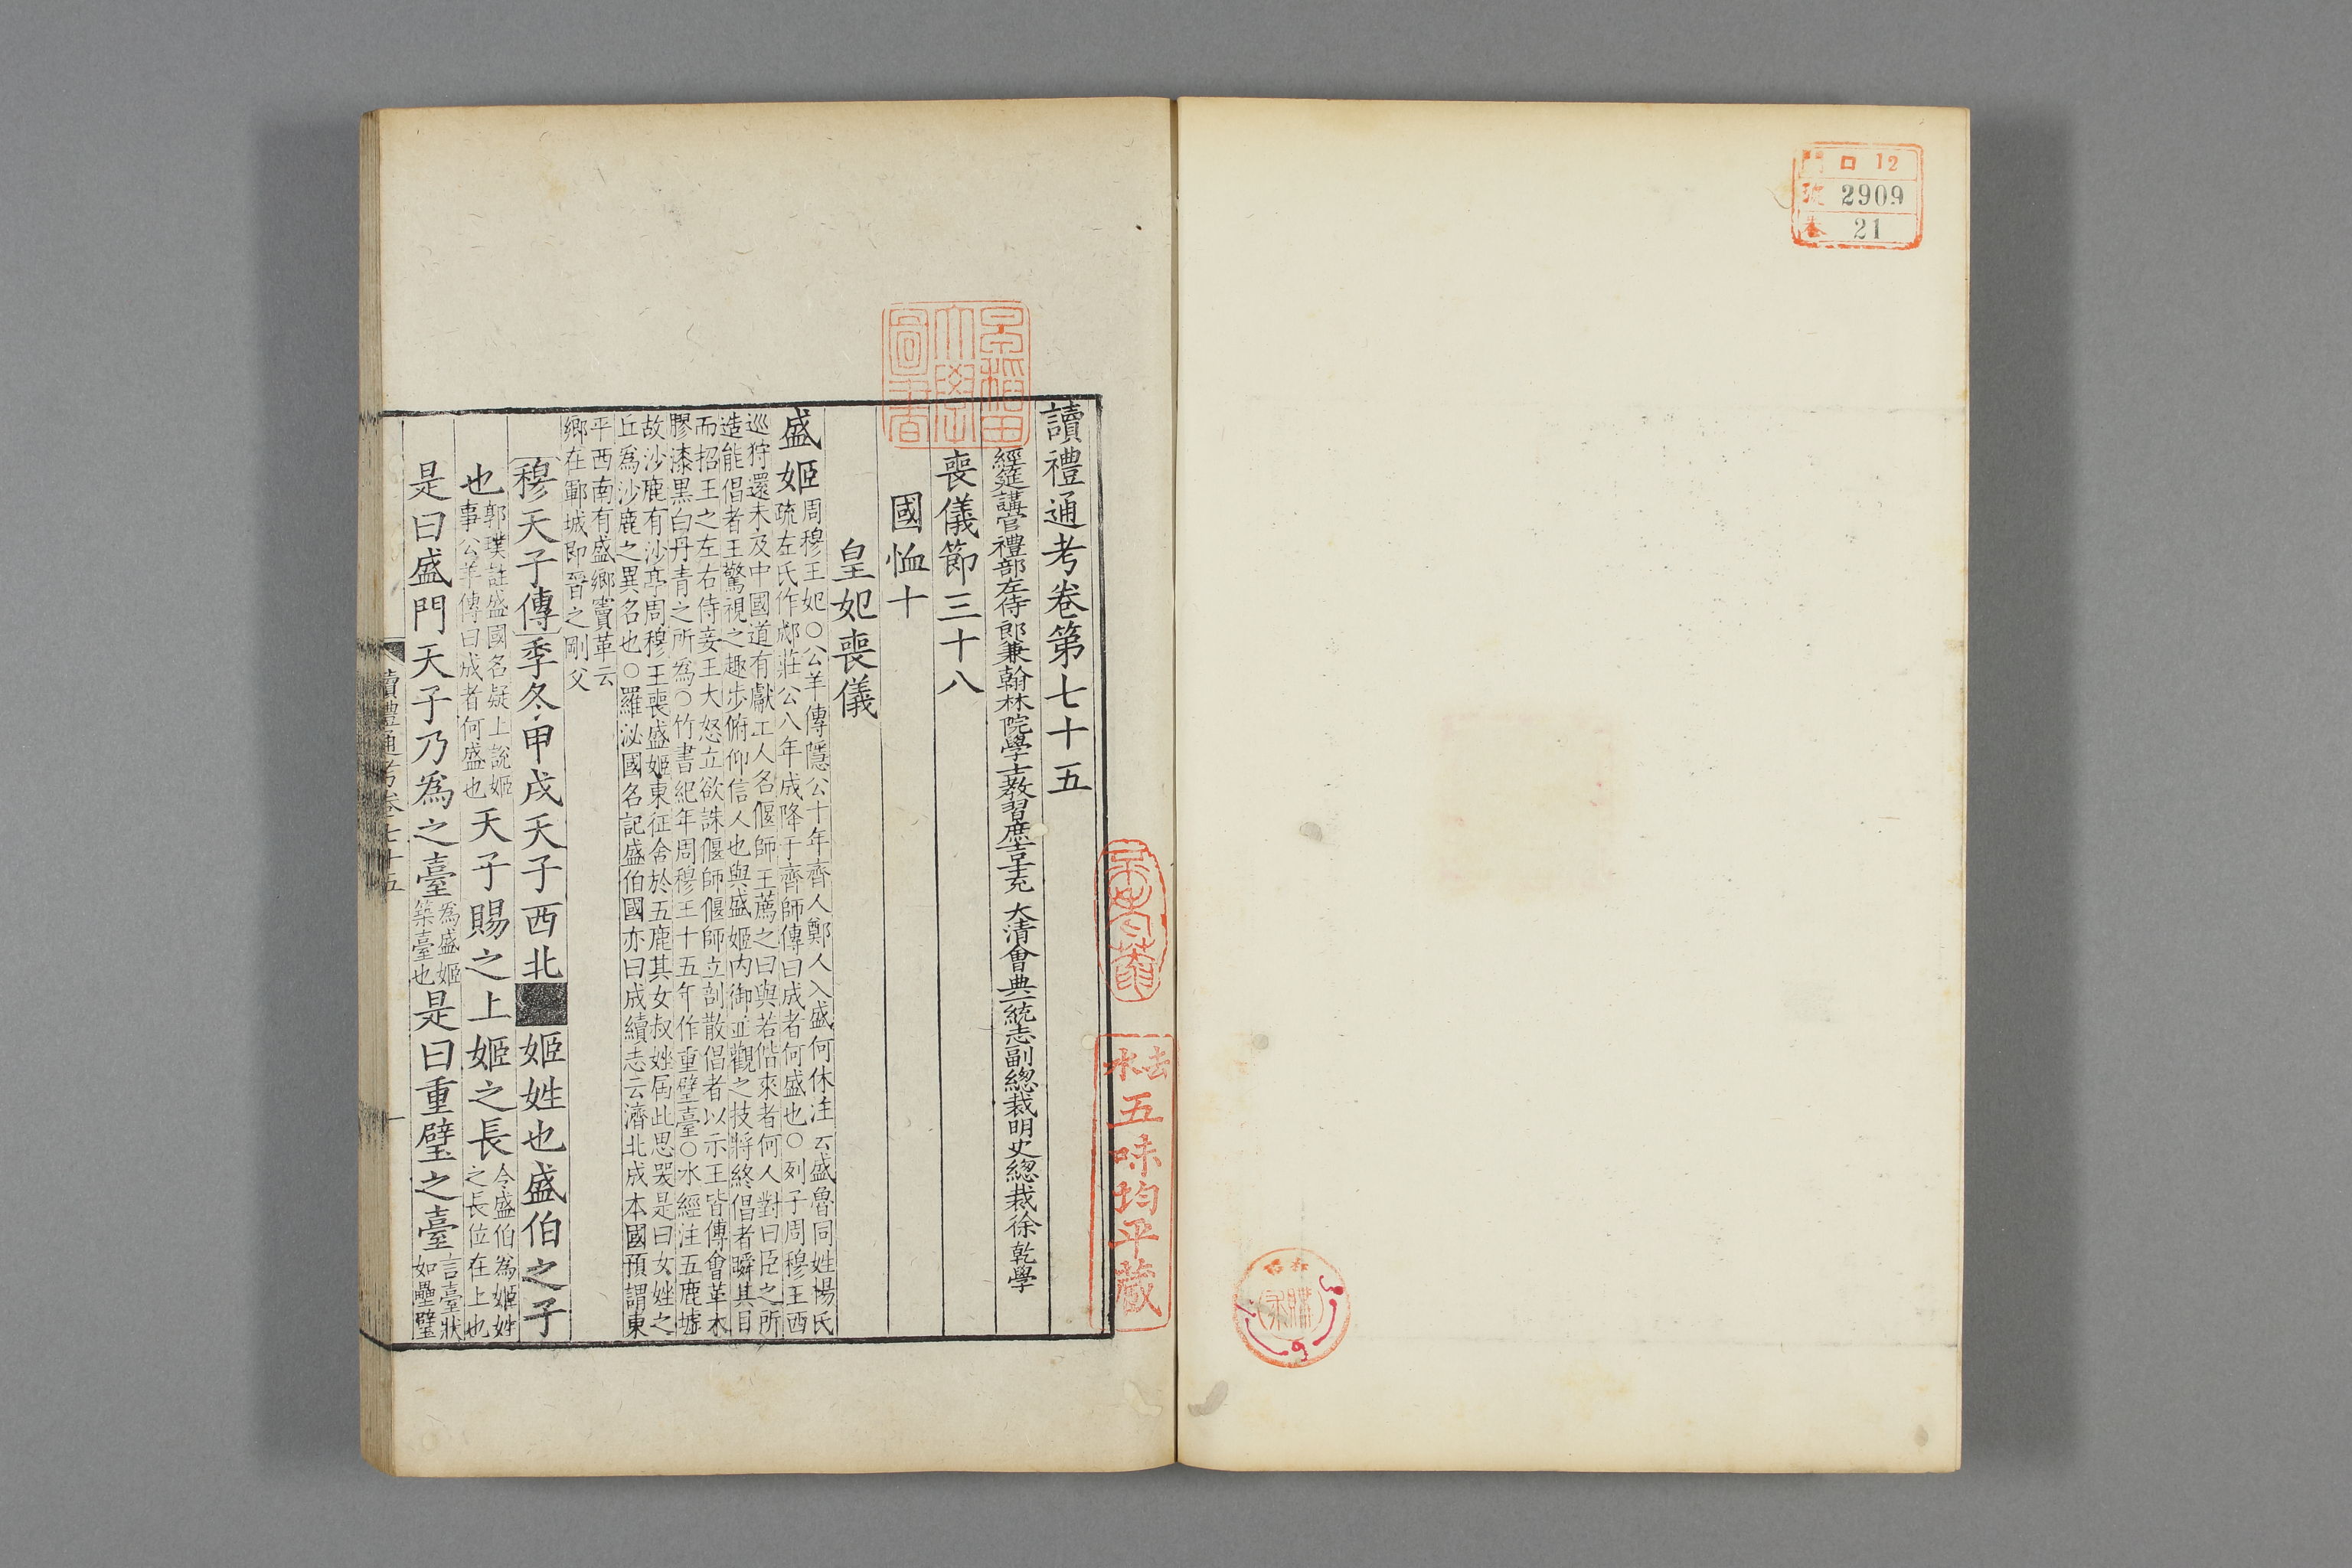 門 口 12
號 2909
卷 21
讀禮通考卷第七十五
經筵講官禮部左侍郎兼翰林院學士教習庶吉士充 大清會典一統志副總裁明史總裁徐乾學
喪儀節三十八
國恤十
皇妃喪儀
盛姬
周穆王妃○公羊傳隱公十年齊人鄭人入盛何休注云盛魯同姓楊氏
疏左氏作郕莊公八年成降于齊師傳曰成者何盛也○列子周穆王西
巡狩還未及中國道有獻工人名偃師王薦之曰與若偕來者何人對曰臣之所
造能倡者王驚視之趣步俯仰信人也與盛姬內御並觀之技將終倡者瞬其目
而招王之左右侍妾王大怒立欲誅偃師偃師立剖散倡者以示王皆傳會革木
膠漆黑白丹青之所為○竹書紀年周穆王十五年作重璧臺○水經注五鹿墟
故沙鹿有沙亭周穆王喪盛姬東征舍於五鹿其女叔姓屆此思哭是曰女姓之
丘為沙鹿之異名也○羅泌國名記盛伯國亦曰成續志云濟北成本國預謂東
平西南有盛鄉竇革云
鄉在鄆城即晉之剛父
穆天子傳季冬甲戌天子西北 姬姓也盛伯之子
也
郭璞註盛國名疑上說姬
事公羊傳曰成者何盛也
天子賜之上姬之長
令盛伯為姬姓
之長位在上也
是曰盛門天子乃為之臺
為盛姬
築臺也
是曰重璧之臺
言臺狀
如壘璧
讀禮通考卷七十五
一
早稻田
大學
圖書
去水
五味均平藏
購求